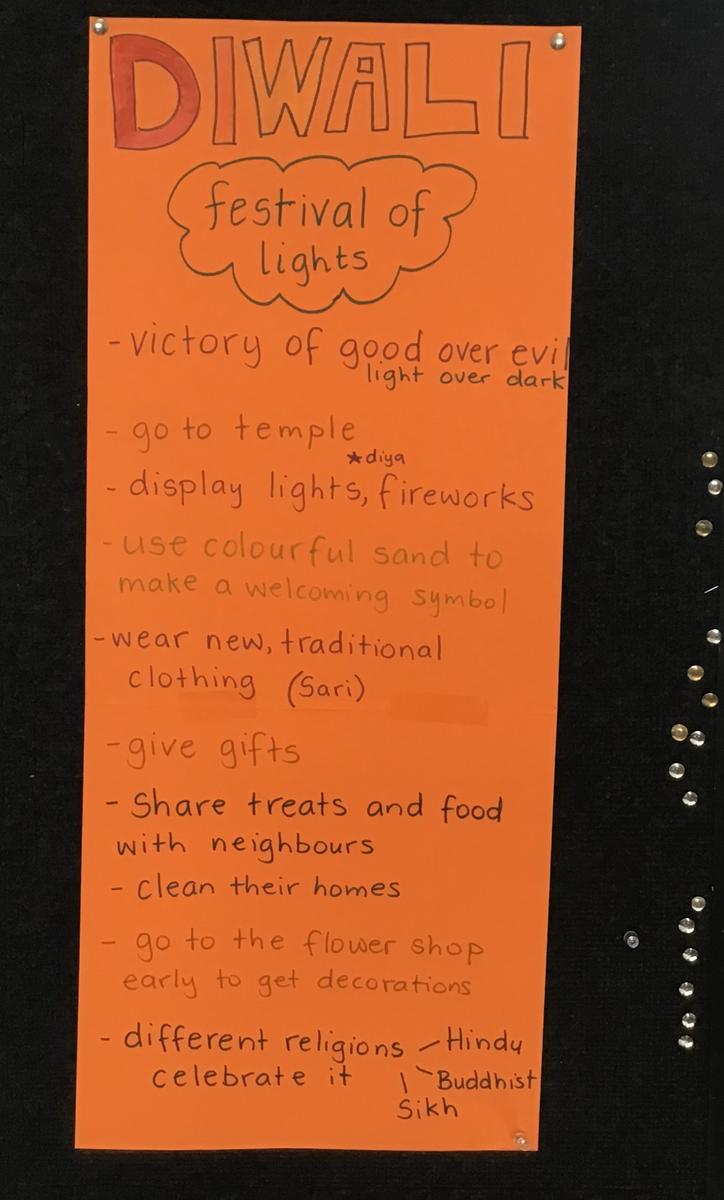 DIWALI
festival of
lights
- victory of good over evil
light over dark
- go to temple
*diya
- display lights, fireworks
- use colourful sand to
make a welcoming symbol
- wear new, traditional
clothing (Sari)
- give gifts
- Share treats and food
with neighbours
- clean their homes
- go to the flower shop
early to get decorations
- different religions - Hindu
celebrate it \ - Buddhist
Sikh